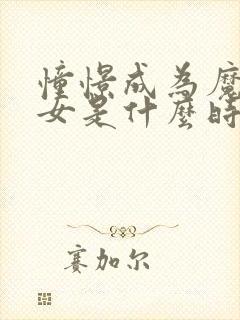 憧憬成為魔
女是什麼時
赛加尔